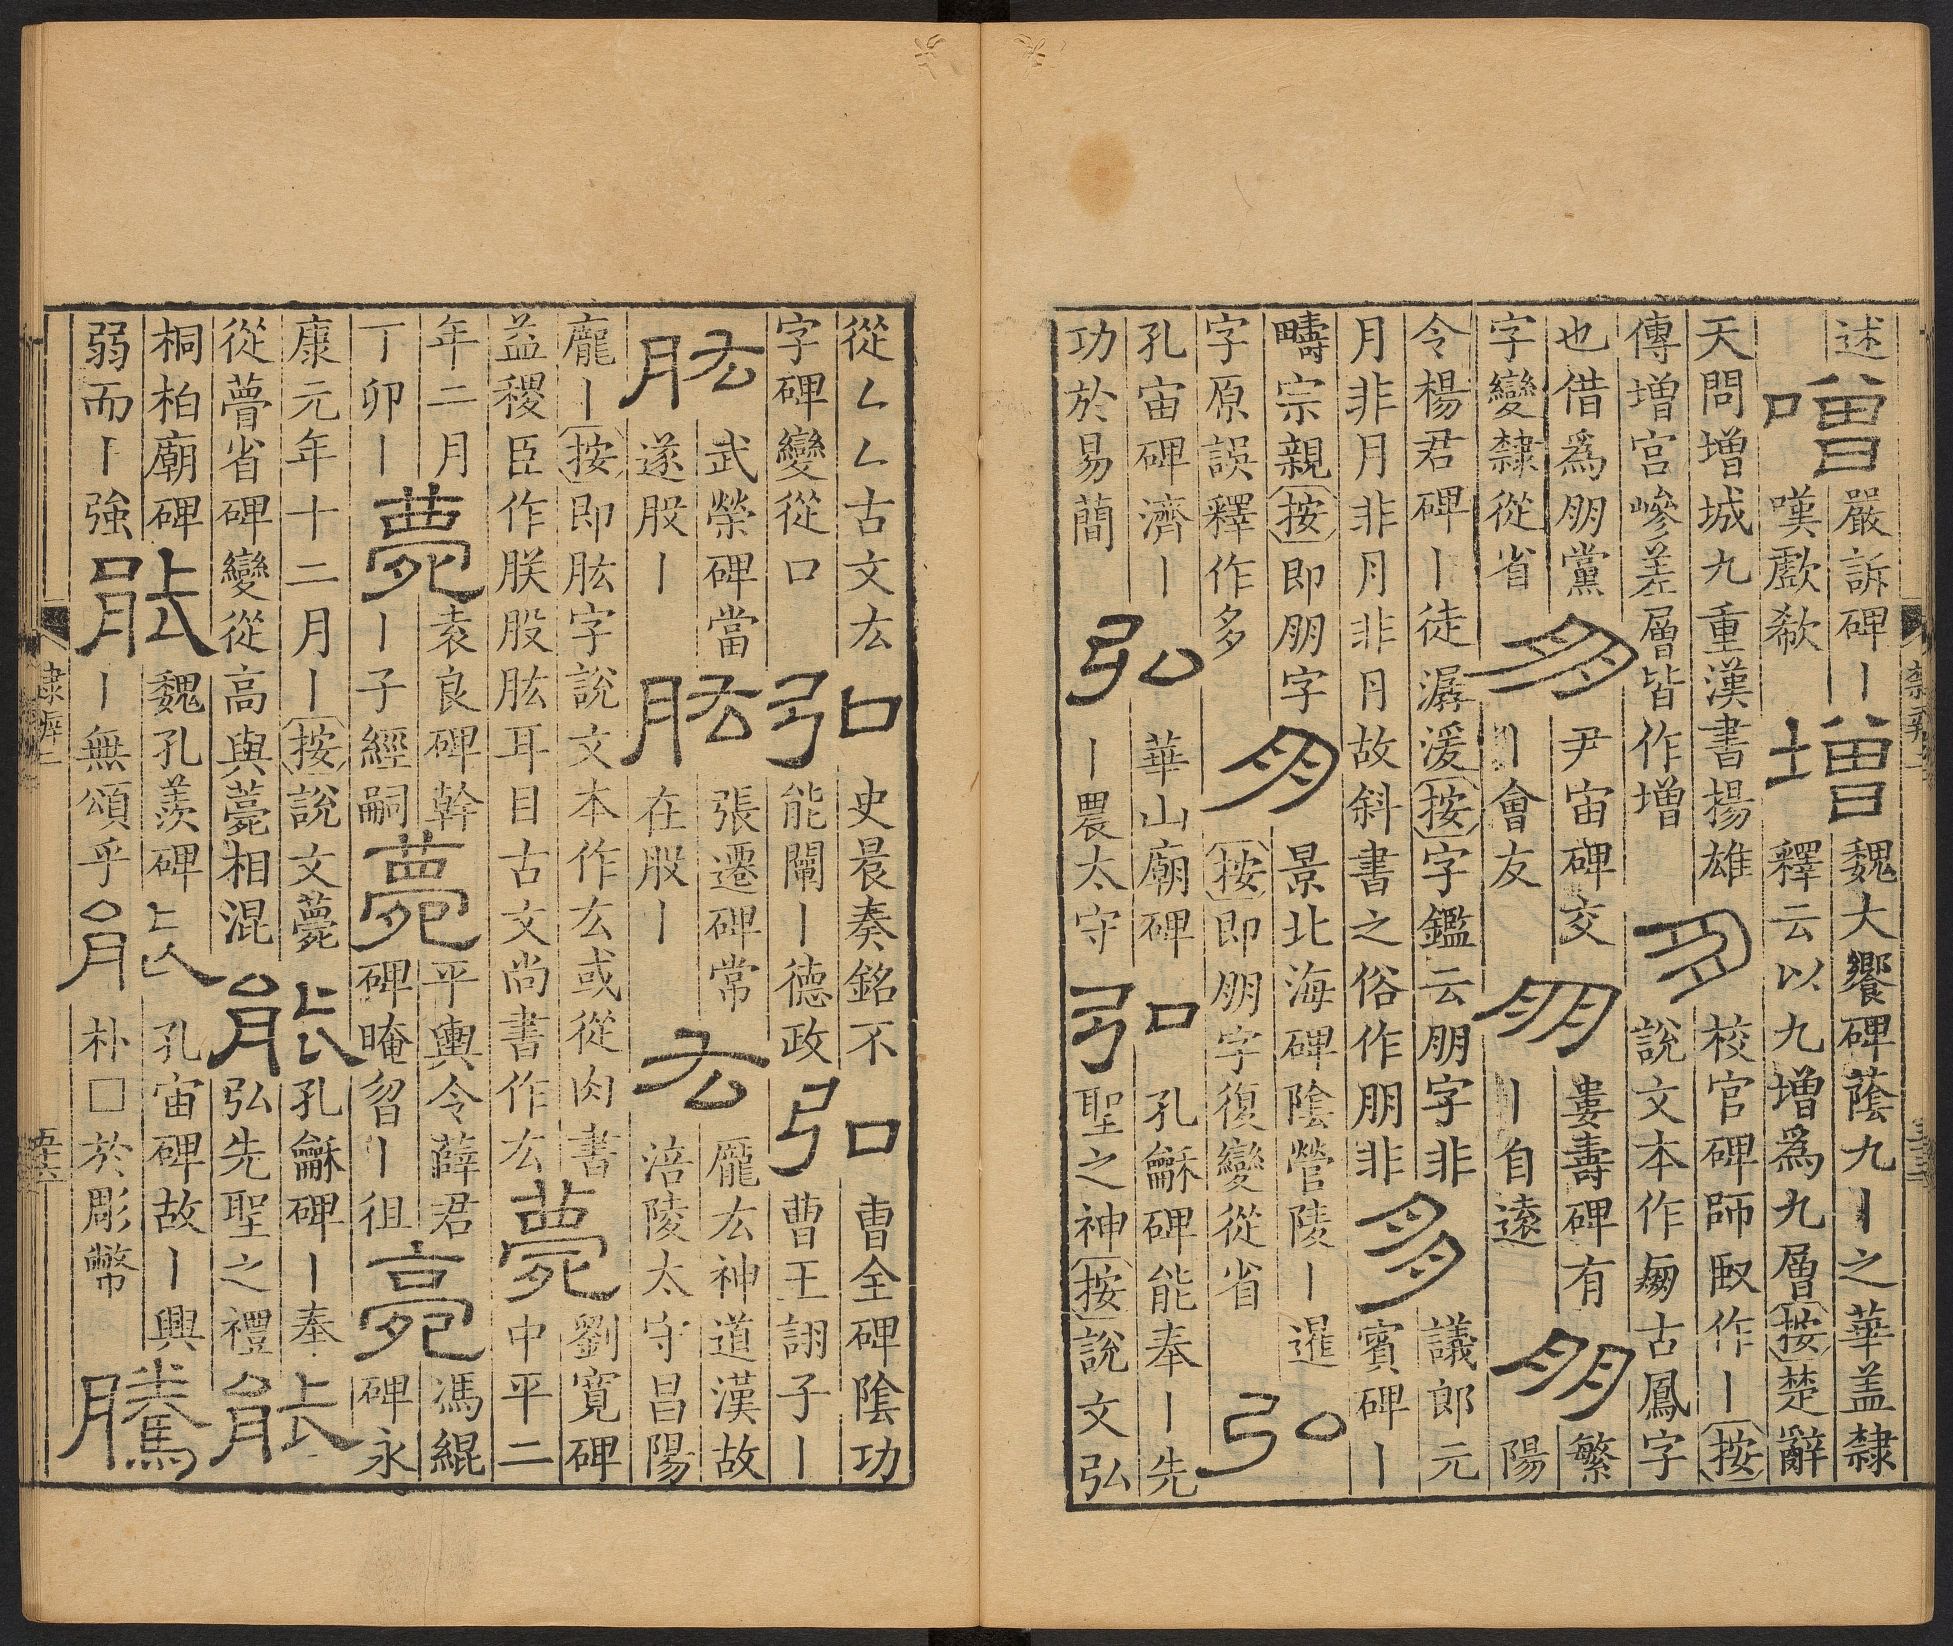 述
噌
嚴訴碑丨
嘆歔欷
增
魏大饗碑蔭九丨之華蓋隸
釋云以九增爲九層按楚辭
天問增城九重漢書揚雄
傳增宮嵾差層皆作增
朋
校官碑師臤作丨按
說文本作𦐟古鳳字
也借爲朋黨
字變隸從省
朋
尹宙碑交
丨會友
朋
婁壽碑有
丨自遠
朋
繁
陽
令楊君碑丨徒潺湲按字鑑云朋字非
月非月非月非月故斜書之俗作朋非
朋
議郎元
賓碑丨
疇宗親按即朋字
字原誤釋作多
朋
景北海碑陰營陵丨暹
按即朋字復變從省
弘
孔宙碑濟丨
功於易簡
弘
華山廟碑
丨農太守
弘
孔龢碑能奉丨先
聖之神按說文弘
從厶厶古文厷
字碑變從口
弘
史晨奏銘不
能闡丨德政
弘
曹全碑陰功
曹王詡子丨
肱
武榮碑當
遂股丨
肱
張遷碑常
在股丨
厷
龐厷神道漢故
涪陵太守昌陽
龐丨按即肱字說文本作厷或從肉書
益稷臣作朕股肱耳目古文尚書作厷
薨
劉寬碑
中平二
年二月
丁卯丨
薨
袁良碑幹
丨子經嗣
薨
平輿令薛君
碑晻曶丨徂
薨
馮緄
碑永
康元年十二月丨按說文薨
從瞢省碑變從高與薧相混
能
孔龢碑丨奉
弘先聖之禮
能
桐柏廟碑
弱而丨強
能
魏孔羨碑
丨無頌乎
能
孔宙碑故丨興
朴□於彫幣
騰
隸辨二
五十六